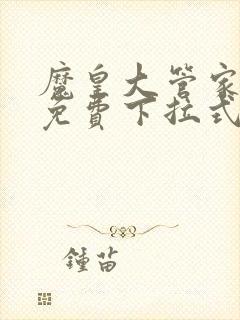 魔皇大管家
免費下拉式
鍾苗